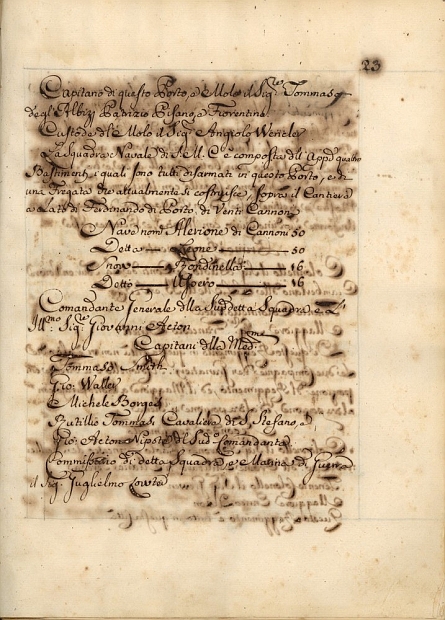 23
Capitano di questo Porto, e Molo il Sig.re Tommaso
degl' Albizi Patrizio Pisano, e Fiorentino.
Custode del Molo il Sig.re Angiolo Wentler
La Squadra Navale di S. M. C. è composta dell' App.o quattro
Bastimenti, i quali sono tutti disarmati in questo Porto, e di
una Fregata che attualmente si costruisce, sopra il Cantiere
a lato di Ferdinando di Porto, di Venti Cannoni
Nave nom.ta Alerione di Cannoni 50
Detta Leone 50
Snow Rondinella 16
Detto 16
Comandante Generale della Suddetta Squadra, e L'
Ill.mo Sig.re Giovanni Acton
Capitani della Med.me
Tommaso Smith
Gio: Waller
Michele Borges
Rutilio Tommasi Cavaliere di S. Stefano, e
Gio: Acton Nipote del Sud.o Comandante
Commissario di detta Squadra, e Marina di Guerra
il Sig.re Guglielmo Lowter